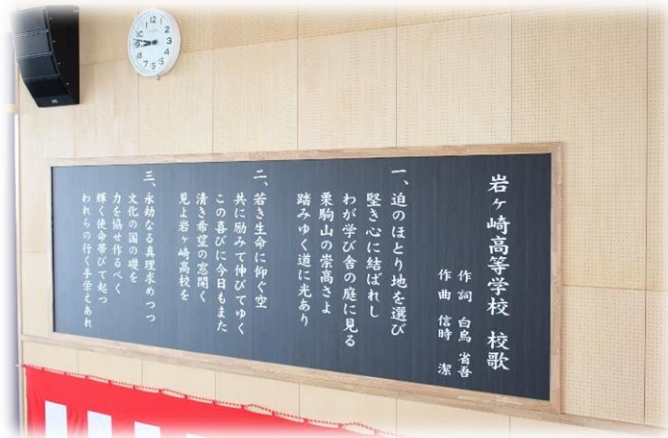 岩ヶ崎高等学校 校歌
作詞 白鳥 省吾
作曲 信時 潔
一、迫のほとり地を選び
堅き心に結ばれし
わが学び舎の庭に見る
栗駒山の崇高さよ
踏みゆく道に光あり
二、若き生命に仰ぐ空
共に励みて伸びてゆく
この喜びに今日もまた
清き希望の窓開く
見よ岩ヶ崎高校を
三、永劫なる真理求めつつ
文化の国の礎を
力を協せ作るべく
輝く使命帯びて起つ
われらの行く手栄えあれ